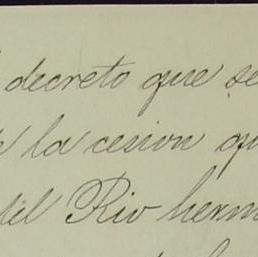 decreto que se
la cesion qu
del Rio herm